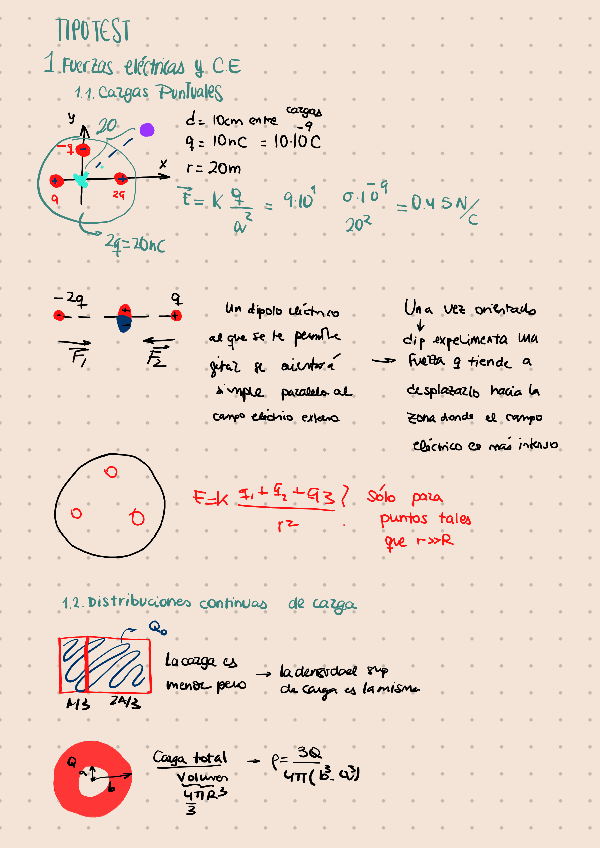 TIPOTEST
1. Fuerzas eléctricas y C.E
1.1. Cargas Puntuales
y 20
-q
x
q 2q
2q = 20nC
d = 10cm entre cargas
q = 10nC = 10·10⁻⁹C
r = 20m
E = K q/a² = 9·10⁹ 0·10⁻⁹/20² = 0.45N/C
-2q q
F₁ F₂
Un dipolo eléctrico
al que se le permite
girar se orientará
siempre paralelo al
campo eléctrico externo
Una vez orientado
dip experimenta una
→ fuerza q tiende a
desplazarlo hacia la
zona donde el campo
eléctrico es más intenso
E=K (q₁+q₂+q3)/r² ?
Sólo para
puntos tales
que r>>R
1.2. Distribuciones continuas de carga
Q₀
A/3 2A/3
La carga es
menor pero
→ la densidad sup
de carga es la misma
Q a b
Carga total
Volumen
4πR³
3
→ ρ = 3Q/4π(b³-a³)